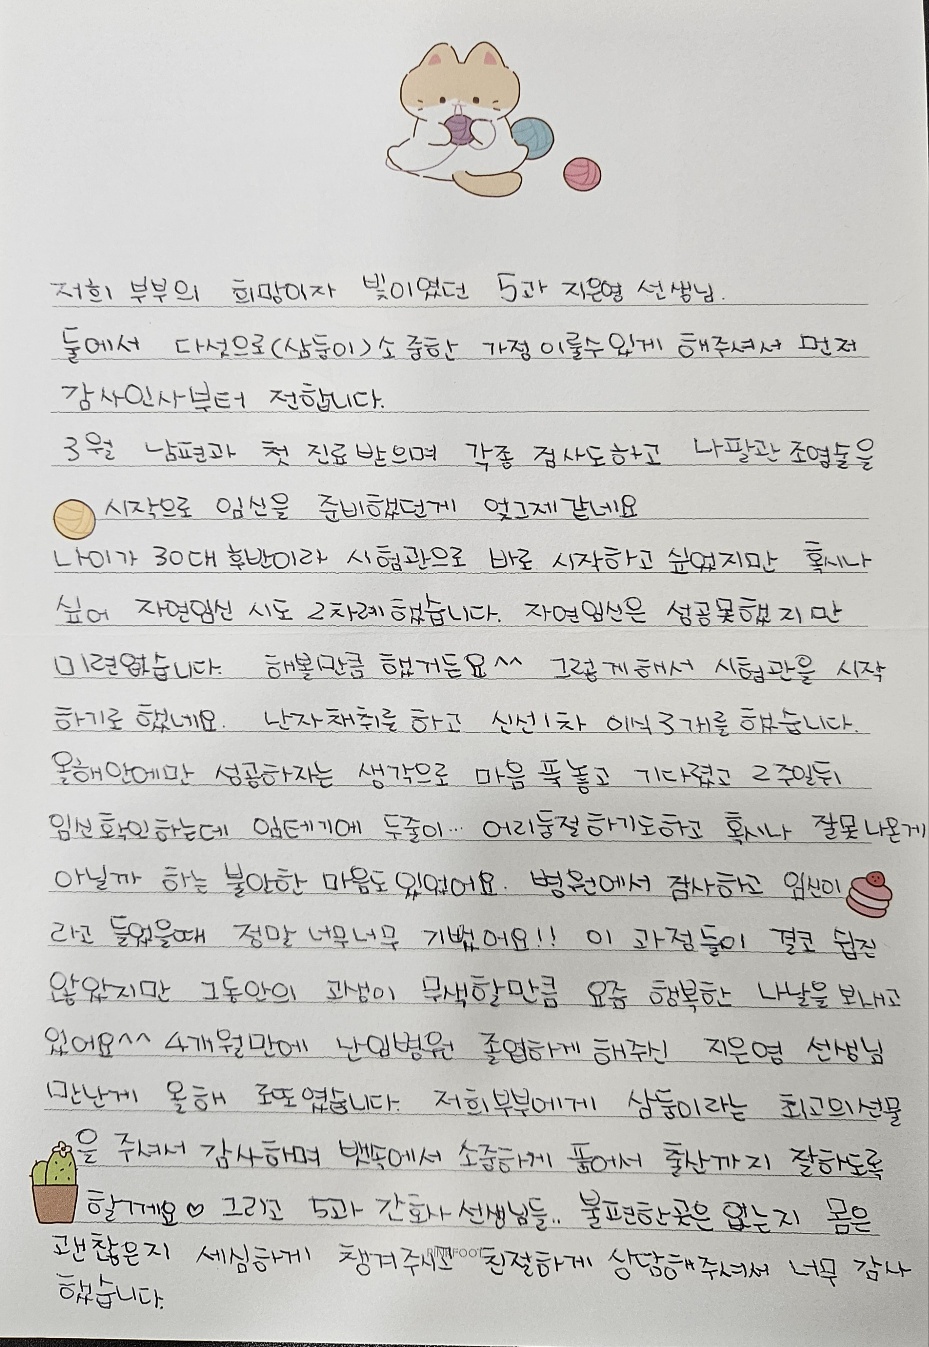 저희 부부의 희망이자 빛이였던 5과 지은영 선생님.
둘에서 다섯으로(삼둥이)소중한 가정이룰수있게 해주셔서 먼저
감사인사부터 전합니다.
3월 남편과 첫 진료받으며 각종 검사도하고 나팔관조영술을
시작으로 임신을 준비했던게 엊그제같네요
나이가 30대후반이라 시험관으로 바로 시작하고 싶었지만 혹시나
싶어 자연임신 시도 2차례했습니다. 자연임신은 성공못했지만
미련없습니다. 해볼만큼 했거든요^^ 그렇게해서 시험관을 시작
하기로 했네요. 난자채취를 하고 신선1차 이식3개를 했습니다.
올해안에만 성공하자는 생각으로 마음 푹놓고 기다렸고 2주일뒤
임신확인하는데 임테기에 두줄이… 어리둥절하기도하고 혹시나 잘못나온게
아닐까 하는 불안한 마음도있었어요. 병원에서 검사하고 임신이
라고 들었을때 정말너무너무 기뻤어요!! 이 과정들이 결코 쉽진
않았지만 그동안의 고생이 무색할만큼 요즘 행복한 나날을보내고
있어요^^ 4개월만에 난임병원 졸업하게해주신 지은영 선생님
만난게 올해 로또였습니다. 저희부부에게 삼둥이라는 최고의선물
을 주셔서 감사하며 뱃속에서 소중하게 품어서 출산까지 잘하도록
할게요♡ 그리고 5과 간호사선생님들.. 불편한곳은 없는지 몸은
괜찮은지 세심하게 챙겨주시고 친절하게 상담해주셔서 너무 감사
했습니다.